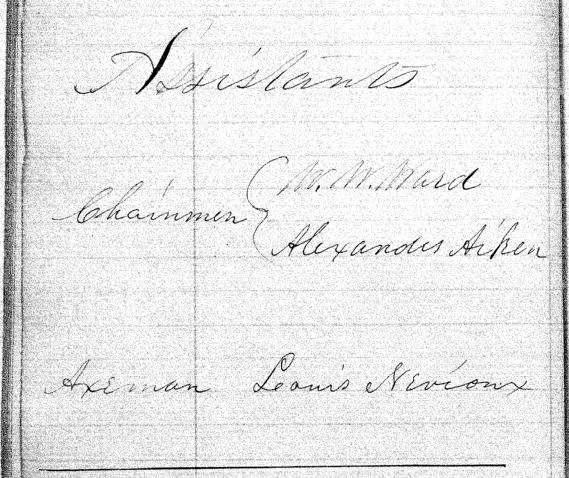 Assistants
W. W. Ward
Chainmen
Alexander Aiken
Axeman Louis Nevioux